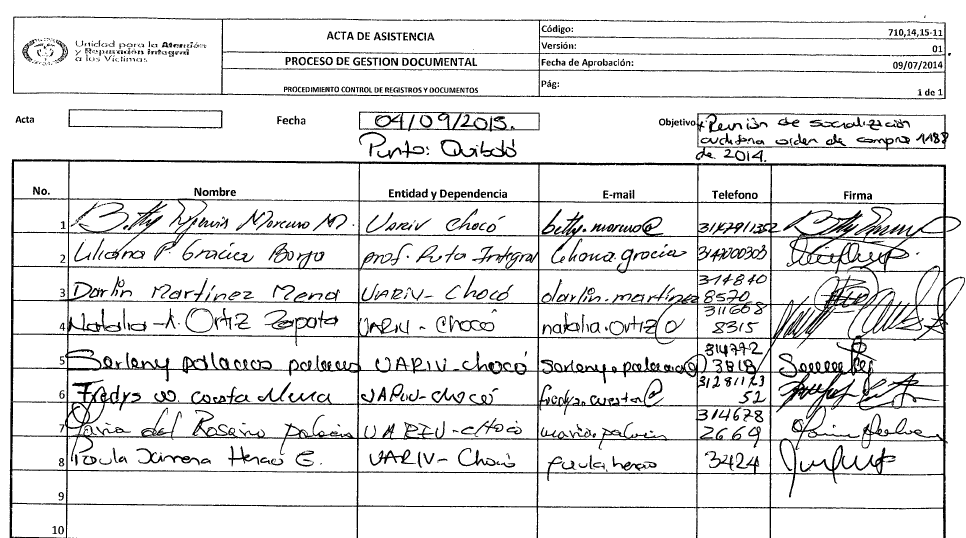 Unidad para la Atención
y Reparación Integral
a las Víctimas
ACTA DE ASISTENCIA
PROCESO DE GESTION DOCUMENTAL
PROCEDIMIENTO CONTROL DE REGISTROS Y DOCUMENTOS
Código: 710,14,15-11
Versión: 01
Fecha de Aprobación: 09/07/2014
Pág: 1 de 1
Acta
Fecha 04/09/2015.
Punto: Quibdó
Objetivo: Reunión de socialización
auditoria orden de compra 1188
de 2014.
No. Nombre Entidad y Dependencia E-mail Telefono Firma
1 Betty Moreno M. UARIV Chocó betty.moreno@
2 Liliana P. Gracia Borja prof. Ruta Integral liliana.gracia 314
3 Darlin Martínez Mena UARIV-Chocó darlin.martinez 314840
8570
4 Natalia A. Ortiz Zapata UARIV-Chocó natalia.ortiz@ 311668
8315
5 Sorleny palacios palacios UARIV-chocó sorleny.palacios@ 314772
3818
6 Fredys UARIV-chocó 31281173
52
7 Maria del Rosario palacios UARIV-CHOCO maria.palacios 314678
2669
8 Paula Ximena Henao E. UARIV-Chocó paula.henao 3424
9
10